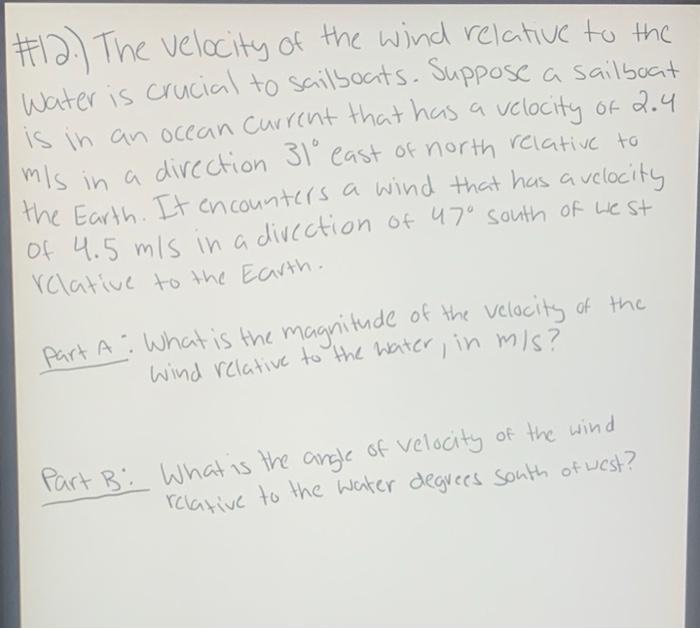 #12.) The velocity of the wind relative to the
water is crucial to sailboats. Suppose a sailboat
is in an ocean current that has a velocity of 2.4
m/s in a direction 31° east of north relative to
the Earth. It encounters a wind that has a velocity
of 4.5 m/s in a direction of 47° south of west
relative to the Earth.
Part A: What is the magnitude of the velocity of the
wind relative to the water, in m/s?
Part B: What is the angle of velocity of the wind
relative to the water degrees south of west?